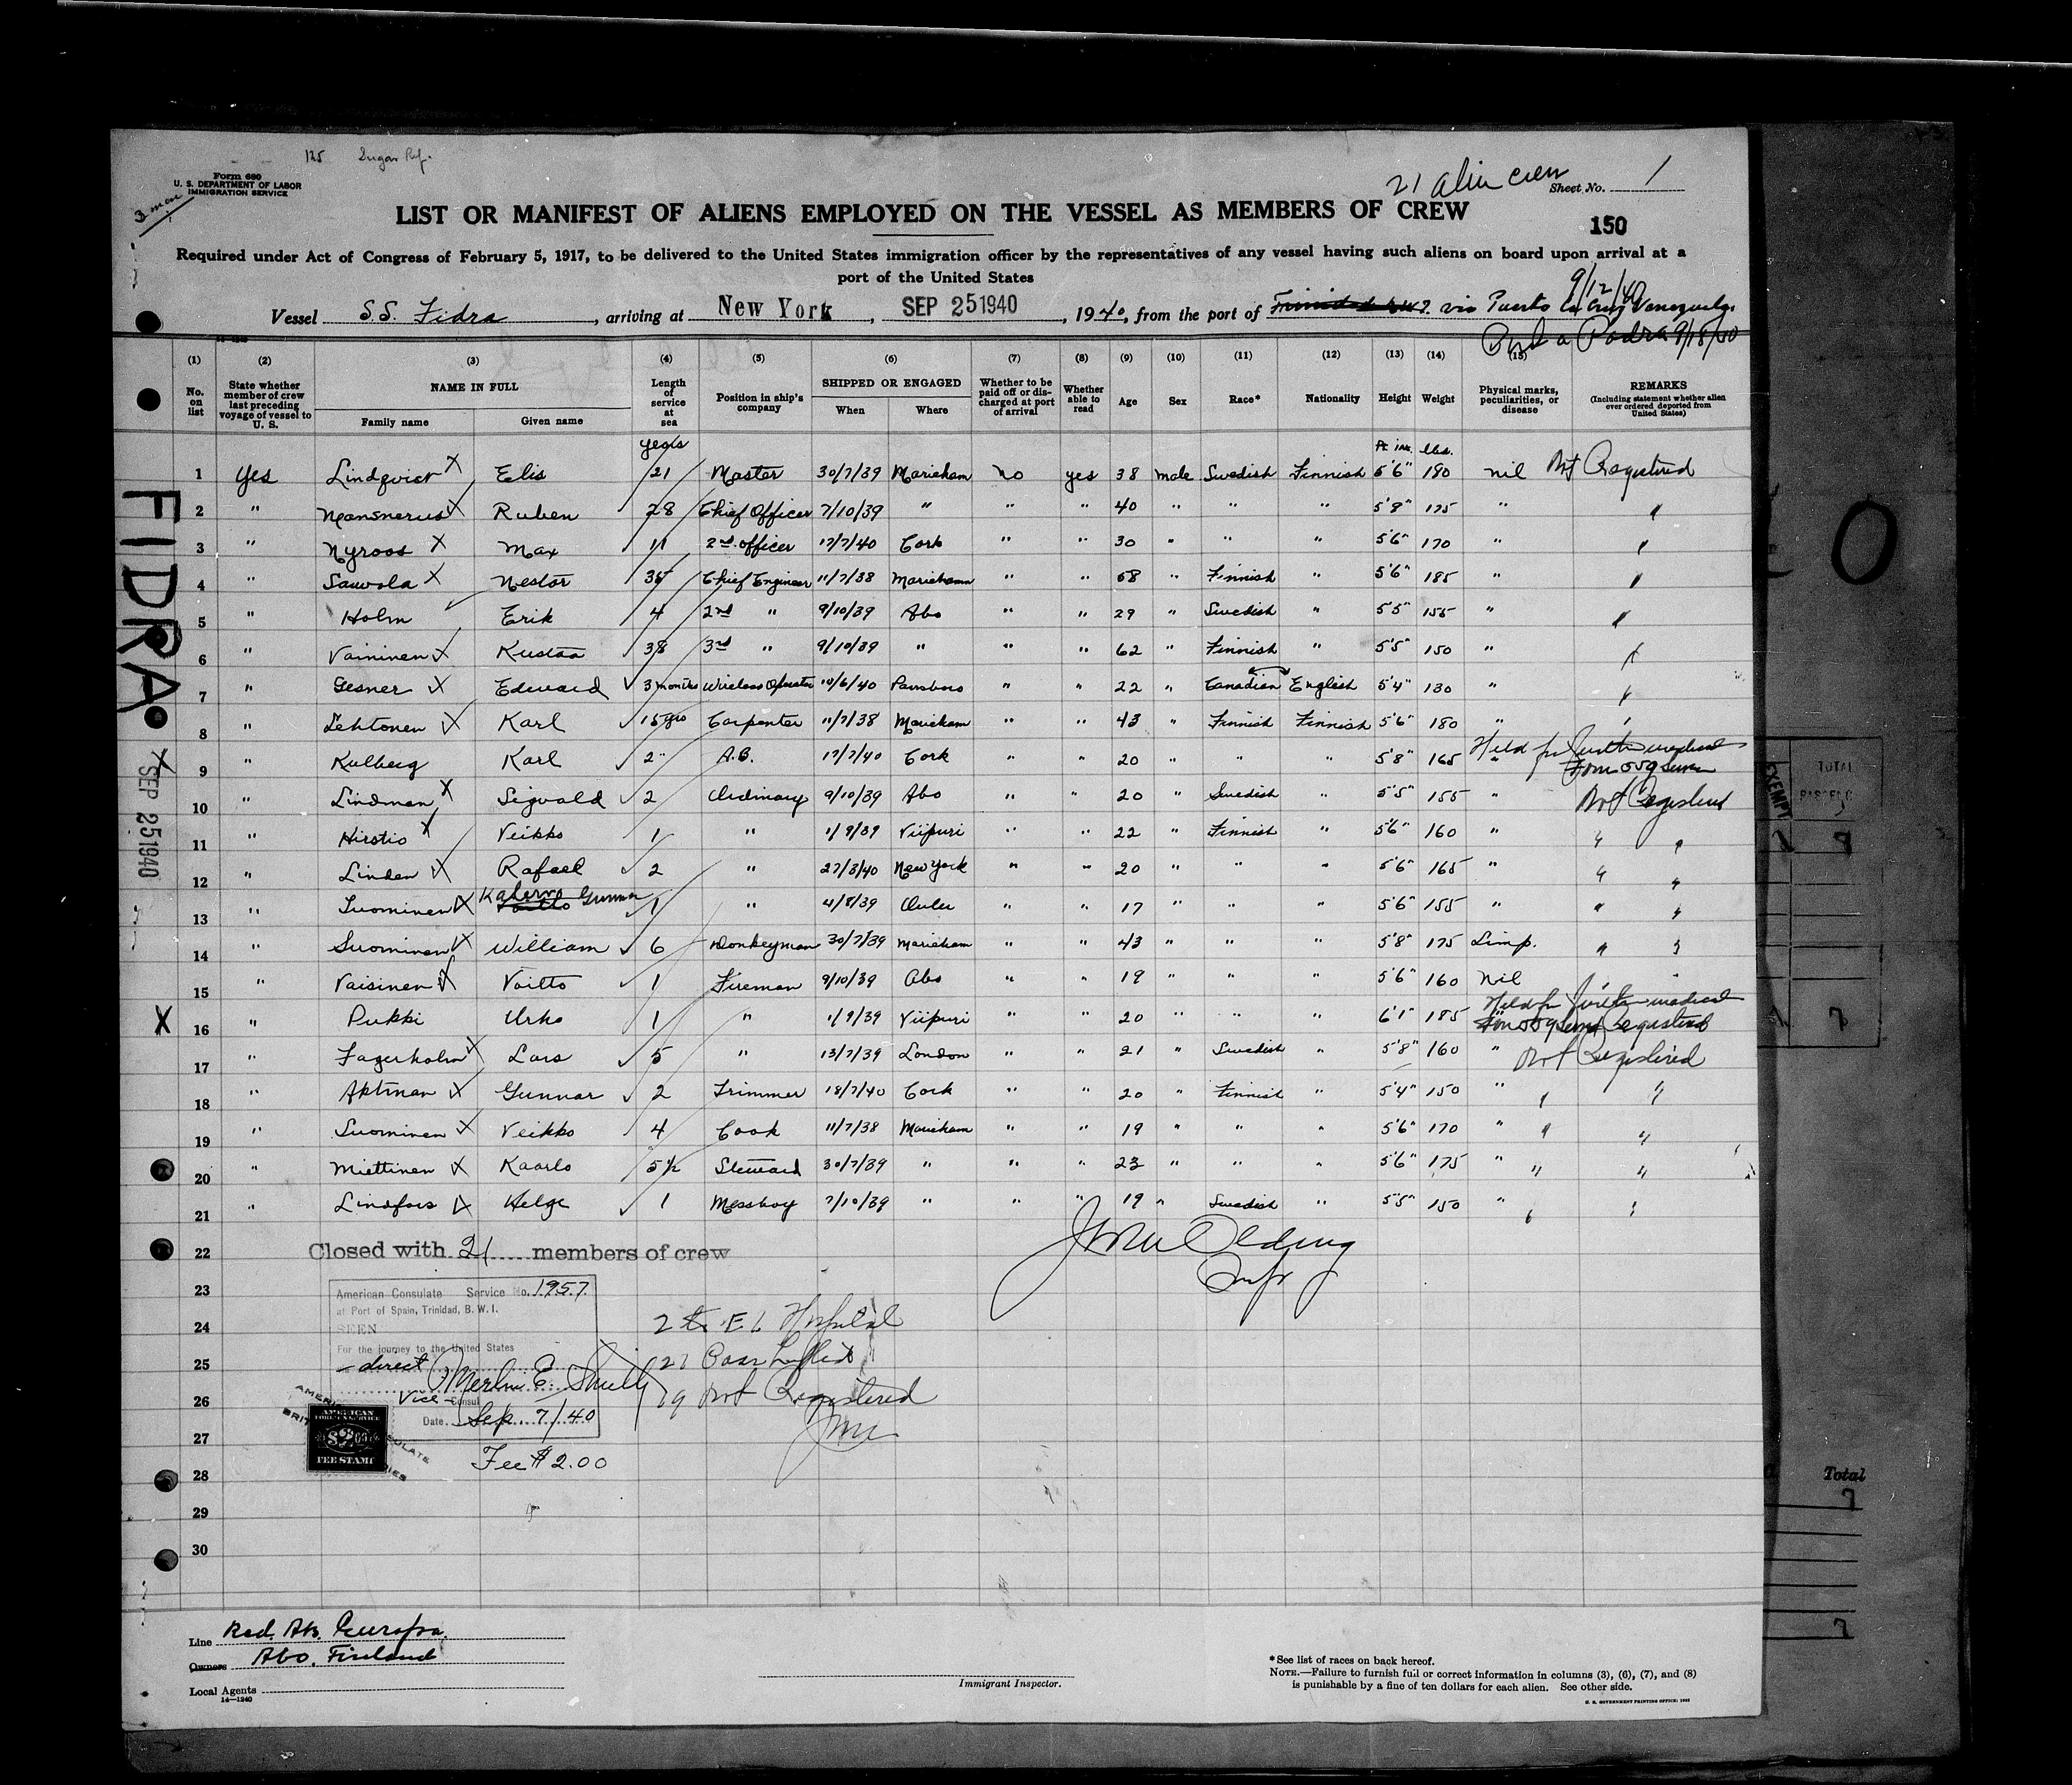 125 Sugar Ref.
Form 680
U. S. DEPARTMENT OF LABOR
IMMIGRATION SERVICE
3 men
21 alien crew
Sheet No. 1
LIST OR MANIFEST OF ALIENS EMPLOYED ON THE VESSEL AS MEMBERS OF CREW
150
Required under Act of Congress of February 5, 1917, to be delivered to the United States immigration officer by the representatives of any vessel having such aliens on board upon arrival at a
port of the United States
9/12/40
Vessel S.S. Fidra, arriving at New York, SEP 25 1940, 1940, from the port of Trinidad via Puerto La Cruz Venezuela
Padra 9/18/40
(1) (2) (3) (4) (5) (6) (7) (8) (9) (10) (11) (12) (13) (14) (15)
No. on list
State whether member of crew last preceding voyage of vessel to U. S.
NAME IN FULL
Family name Given name
Length of service at sea
Position in ship's company
SHIPPED OR ENGAGED
When Where
Whether to be paid off or discharged at port of arrival
Whether able to read
Age Sex Race* Nationality Height Weight
Physical marks, peculiarities, or disease
REMARKS
(Including statement whether alien ever ordered deported from United States)
years Ft ins. lbs.
1 Yes Lindqvist X Elis 21 Master 30/7/39 Marieham no yes 38 male Swedish Finnish 5'6" 180 nil Not Registered
2 " Mansnerus X Ruben 28 Chief Officer 7/10/39 " " " 40 " " " 5'8" 175 " "
3 " Nyroos X Max 11 2nd officer 17/7/40 Cork " " 30 " " " 5'6" 170 " "
4 " Sauvola X Nestor 35 Chief Engineer 11/7/38 Mariehamn " " 58 " Finnish " 5'6" 185 " "
5 " Holm Erik 4 2nd " 9/10/39 Abo " " 29 " Swedish " 5'5" 155 " "
6 " Vaininen X Kustaa 38 3rd " 9/10/39 " " " 62 " Finnish " 5'5" 150 " "
7 " Gesner X Edward 3 months Wireless Operator 10/6/40 Parrsboro " " 22 " Canadian English 5'4" 130 " "
8 " Lehtonen X Karl 15 yrs Carpenter 11/7/38 Marieham " " 43 " Finnish Finnish 5'6" 180 " "
9 " Kulberg Karl 2 " A.B. 17/7/40 Cork " " 20 " " " 5'8" 165 " Held for further medical
10 " Lindman X Sigvald 2 Ordinary 9/10/39 Abo " " 20 " Swedish " 5'5" 155 " Not Registered
11 " Hirstio X Veikko 1 " 1/9/39 Viipuri " " 22 " Finnish " 5'6" 160 " " "
12 " Linden X Rafael 2 " 27/3/40 New York " " 20 " " " 5'6" 165 " " "
13 " Suominen X Kalervo Gunnar 1 " 4/8/39 Oulu " " 17 " " " 5'6" 155 " " "
14 " Suominen X William 6 Donkeyman 30/7/39 Marieham " " 43 " " " 5'8" 175 Limp. " "
15 " Vaisinen X Voitto 1 Fireman 9/10/39 Abo " " 19 " " " 5'6" 160 nil "
X 16 " Pukki Urho 1 " 1/9/39 Viipuri " " 20 " " " 6'1" 185 Held for further medical
17 " Fagerholm X Lars 5 " 13/7/39 London " " 21 " Swedish " 5'8" 160 " Not Registered
18 " Aktman X Gunnar 2 Trimmer 18/7/40 Cork " " 20 " Finnish " 5'4" 150 " " "
19 " Suominen X Veikko 4 Cook 11/7/38 Marieham " " 19 " " " 5'6" 170 " " "
20 " Miettinen X Kaarlo 5½ Steward 30/7/39 " " " 23 " " " 5'6" 175 " " "
21 " Lindfors X Helge 1 Messboy 7/10/39 " " " 19 " Swedish " 5'5" 150 " " "
22 Closed with 21 members of crew
23
24
25
26
27
28
29
30
FIDRA
X SEP 25 1940
American Consulate Service No. 1957
at Port of Spain, Trinidad, B. W. I.
SEEN
For the journey to the United States
direct
Merlin E. Smith
Vice Consul
Date Sep. 7/40
AMERICAN
FOREIGN SERVICE
FEE STAMP
Fee $2.00
2 to E I Hospital
19 Not Registered
Line Red. Ab. Europa.
Owners Abo. Finland
Local Agents
14—1240
Immigrant Inspector.
*See list of races on back hereof.
NOTE.—Failure to furnish full or correct information in columns (3), (6), (7), and (8)
is punishable by a fine of ten dollars for each alien. See other side.
U. S. GOVERNMENT PRINTING OFFICE
EXEMPT
TOTAL
Total